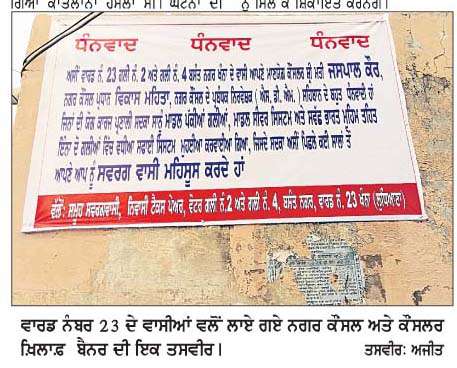 ਗਿਆ ਕਾਤਲਾਨਾ ਹਮਲਾ ਸੀ। ਘਟਨਾ ਦੀ ਨੂੰ ਮਿਲ ਕੇ ਸ਼ਿਕਾਇਤ ਕਰਨਗੇ।
ਧੰਨਵਾਦ ਧੰਨਵਾਦ ਧੰਨਵਾਦ
ਅਸੀਂ ਵਾਰਡ ਨੰ. 23 ਗਲੀ ਨੰ. 2 ਅਤੇ ਗਲੀ ਨੰ. 4, ਬਸੰਤ ਨਗਰ ਖੰਨਾ ਦੇ ਵਾਸੀ ਆਪਣੇ ਮਾਣਯੋਗ ਕੌਂਸਲਰ ਸ਼੍ਰੀ ਮਤੀ ਜਸਪਾਲ ਕੌਰ,
ਨਗਰ ਕੌਂਸਲ ਪ੍ਰਧਾਨ ਵਿਕਾਸ ਮਹਿਤਾ, ਨਗਰ ਕੌਂਸਲ ਦੇ ਪ੍ਰਬੰਧਕ (ਐਸ. ਡੀ. ਐਮ.) ਸਹਿਬਾਨ ਦੇ ਬਹੁਤ ਧੰਨਵਾਦੀ ਹਾਂ
ਜਿਨਾਂ ਦੀ ਯੋਗ ਕਾਰਜ ਪ੍ਰਣਾਲੀ ਸਦਕਾ ਸਾਨੂੰ ਮਾਡਲ ਪੱਕੀਆਂ ਗਲੀਆਂ, ਮਾਡਲ ਸੀਵਰ ਸਿਸਟਮ ਅਤੇ ਸਵੱਛ ਭਾਰਤ ਮੁਹਿੰਮ ਤਹਿਤ
ਇੰਨਾ ਦੋ ਗਲੀਆਂ ਵਿੱਚ ਵਧੀਆ ਸਫਾਈ ਸਿਸਟਮ ਮੁਹਈਆ ਕਰਵਾਇਆ ਗਿਆ, ਜਿਸਦੇ ਸਦਕਾ ਅਸੀਂ ਪਿਛਲੇ ਕਈ ਸਾਲ ਤੋਂ
ਆਪਣੇ ਆਪ ਨੂੰ ਸਵਰਗ ਵਾਸੀ ਮਹਿਸੂਸ ਕਰਦੇ ਹਾਂ
ਵੱਲੋਂ: ਸਮੂਹ ਸਵਰਗਵਾਸੀ, ਨਿਵਾਸੀ ਟੈਕਸ ਪੇਅਰ, ਵੋਟਰ ਗਲੀ ਨੰ.2 ਅਤੇ ਗਲੀ ਨੰ. 4, ਬਸੰਤ ਨਗਰ, ਵਾਰਡ ਨੰ. 23 ਖੰਨਾ (ਲੁਧਿਆਣਾ)
ਵਾਰਡ ਨੰਬਰ 23 ਦੇ ਵਾਸੀਆਂ ਵਲੋਂ ਲਾਏ ਗਏ ਨਗਰ ਕੌਂਸਲ ਅਤੇ ਕੌਂਸਲਰ
ਖ਼ਿਲਾਫ਼ ਬੈਨਰ ਦੀ ਇਕ ਤਸਵੀਰ। ਤਸਵੀਰ: ਅਜੀਤ